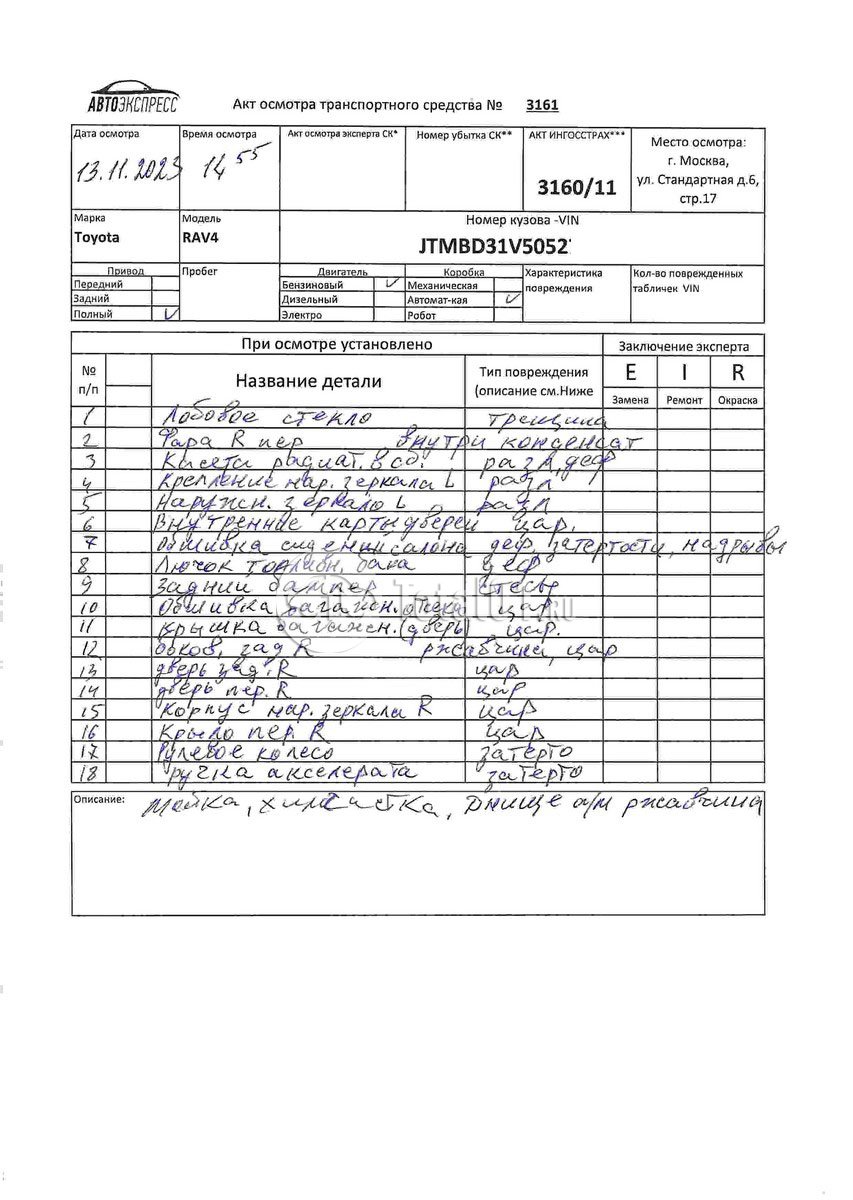 АВТОЭКСПРЕСС
Акт осмотра транспортного средства № 3161
Дата осмотра Время осмотра Акт осмотра эксперта СК* Номер убытка СК** АКТ ИНГОССТРАХ*** Место осмотра:
13.11.2023 14 55 3160/11 г. Москва,
ул. Стандартная д.6,
стр.17
Марка Модель Номер кузова -VIN
Toyota RAV4 JTMBD31V5052
Привод Пробег Двигатель Коробка Характеристика повреждения Кол-во поврежденных табличек VIN
Передний Бензиновый ✓ Механическая
Задний Дизельный Автомат-кая ✓
Полный ✓ Электро Робот
При осмотре установлено Заключение эксперта
№ п/п Название детали Тип повреждения (описание см.Ниже E I R
Замена Ремонт Окраска
1 Лобовое стекло трещина
2 Фара R пер внутри конденсат
3 Касета радиат. в сб. разл, деф
4 Крепление нар. зеркала L разл
5 Наружн. зеркало L разл
6 Внутренние карты дверей цар.
7 Обшивка сидений салона деф, затертости, надрывы
8 Лючок топливн, бака деф
9 Задний бампер
10 Обшивка багажн. отсека цар
11 крышка багажн. (дверь) цар.
12 боков, зад R ржавчина, цар
13 дверь зад. R цар
14 дверь пер. R цар
15 Корпус нар. зеркала R цар
16 Крыло пер R цар
17 Рулевое колесо затерто
18 ручка акселерата затерто
Описание: Мойка, химчистка, Днище а/м ржавчина